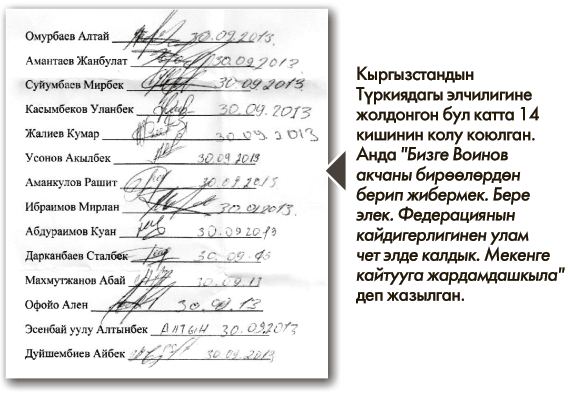 Омурбаев Алтай 30.09.2013.
Амантаев Жанбулат 30.09.2013
Суйумбаев Мирбек 30.09.2013.
Касымбеков Уланбек 30.09.2013
Жалиев Кумар 30.09.2013
Усонов Акылбек 30.09.2013
Аманкулов Рашит 30.09.2013
Ибраимов Мирлан
Абдураимов Куан 30.09.2013
Дарканбаев Сталбек 30.09.13
Махмутжанов Абай 30.09.13
Офойо Ален 30.09.13
Эсенбай уулу Алтынбек Алтын 30.092013
Дуйшембиев Айбек 30.09.2013
Кыргызстандын
Түркиядагы элчилигине
жолдонгон бул катта 14
кишинин колу коюлган.
Анда "Бизге Воинов
акчаны бирөөлөрдөн
берип жибермек. Бере
элек. Федерациянын
кайдигерлигинен улам
чет элде калдык. Мекенге
кайтууга жардамдашкыла"
деп жазылган.